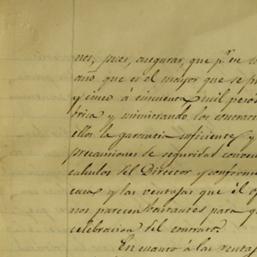 nos, pues, asegurar, que pr. en u
año que es el mayor que se pr
y cinco á cincuenta mil pesos
brica y suministrando los contrat
ellos la garancia suficiente y
precauciones de seguridad conven
calculos del Director y conform
caus y las ventajas que él of
nos parecen bastantes para q
celebracion del contrato.
En cuanto á las ventaj